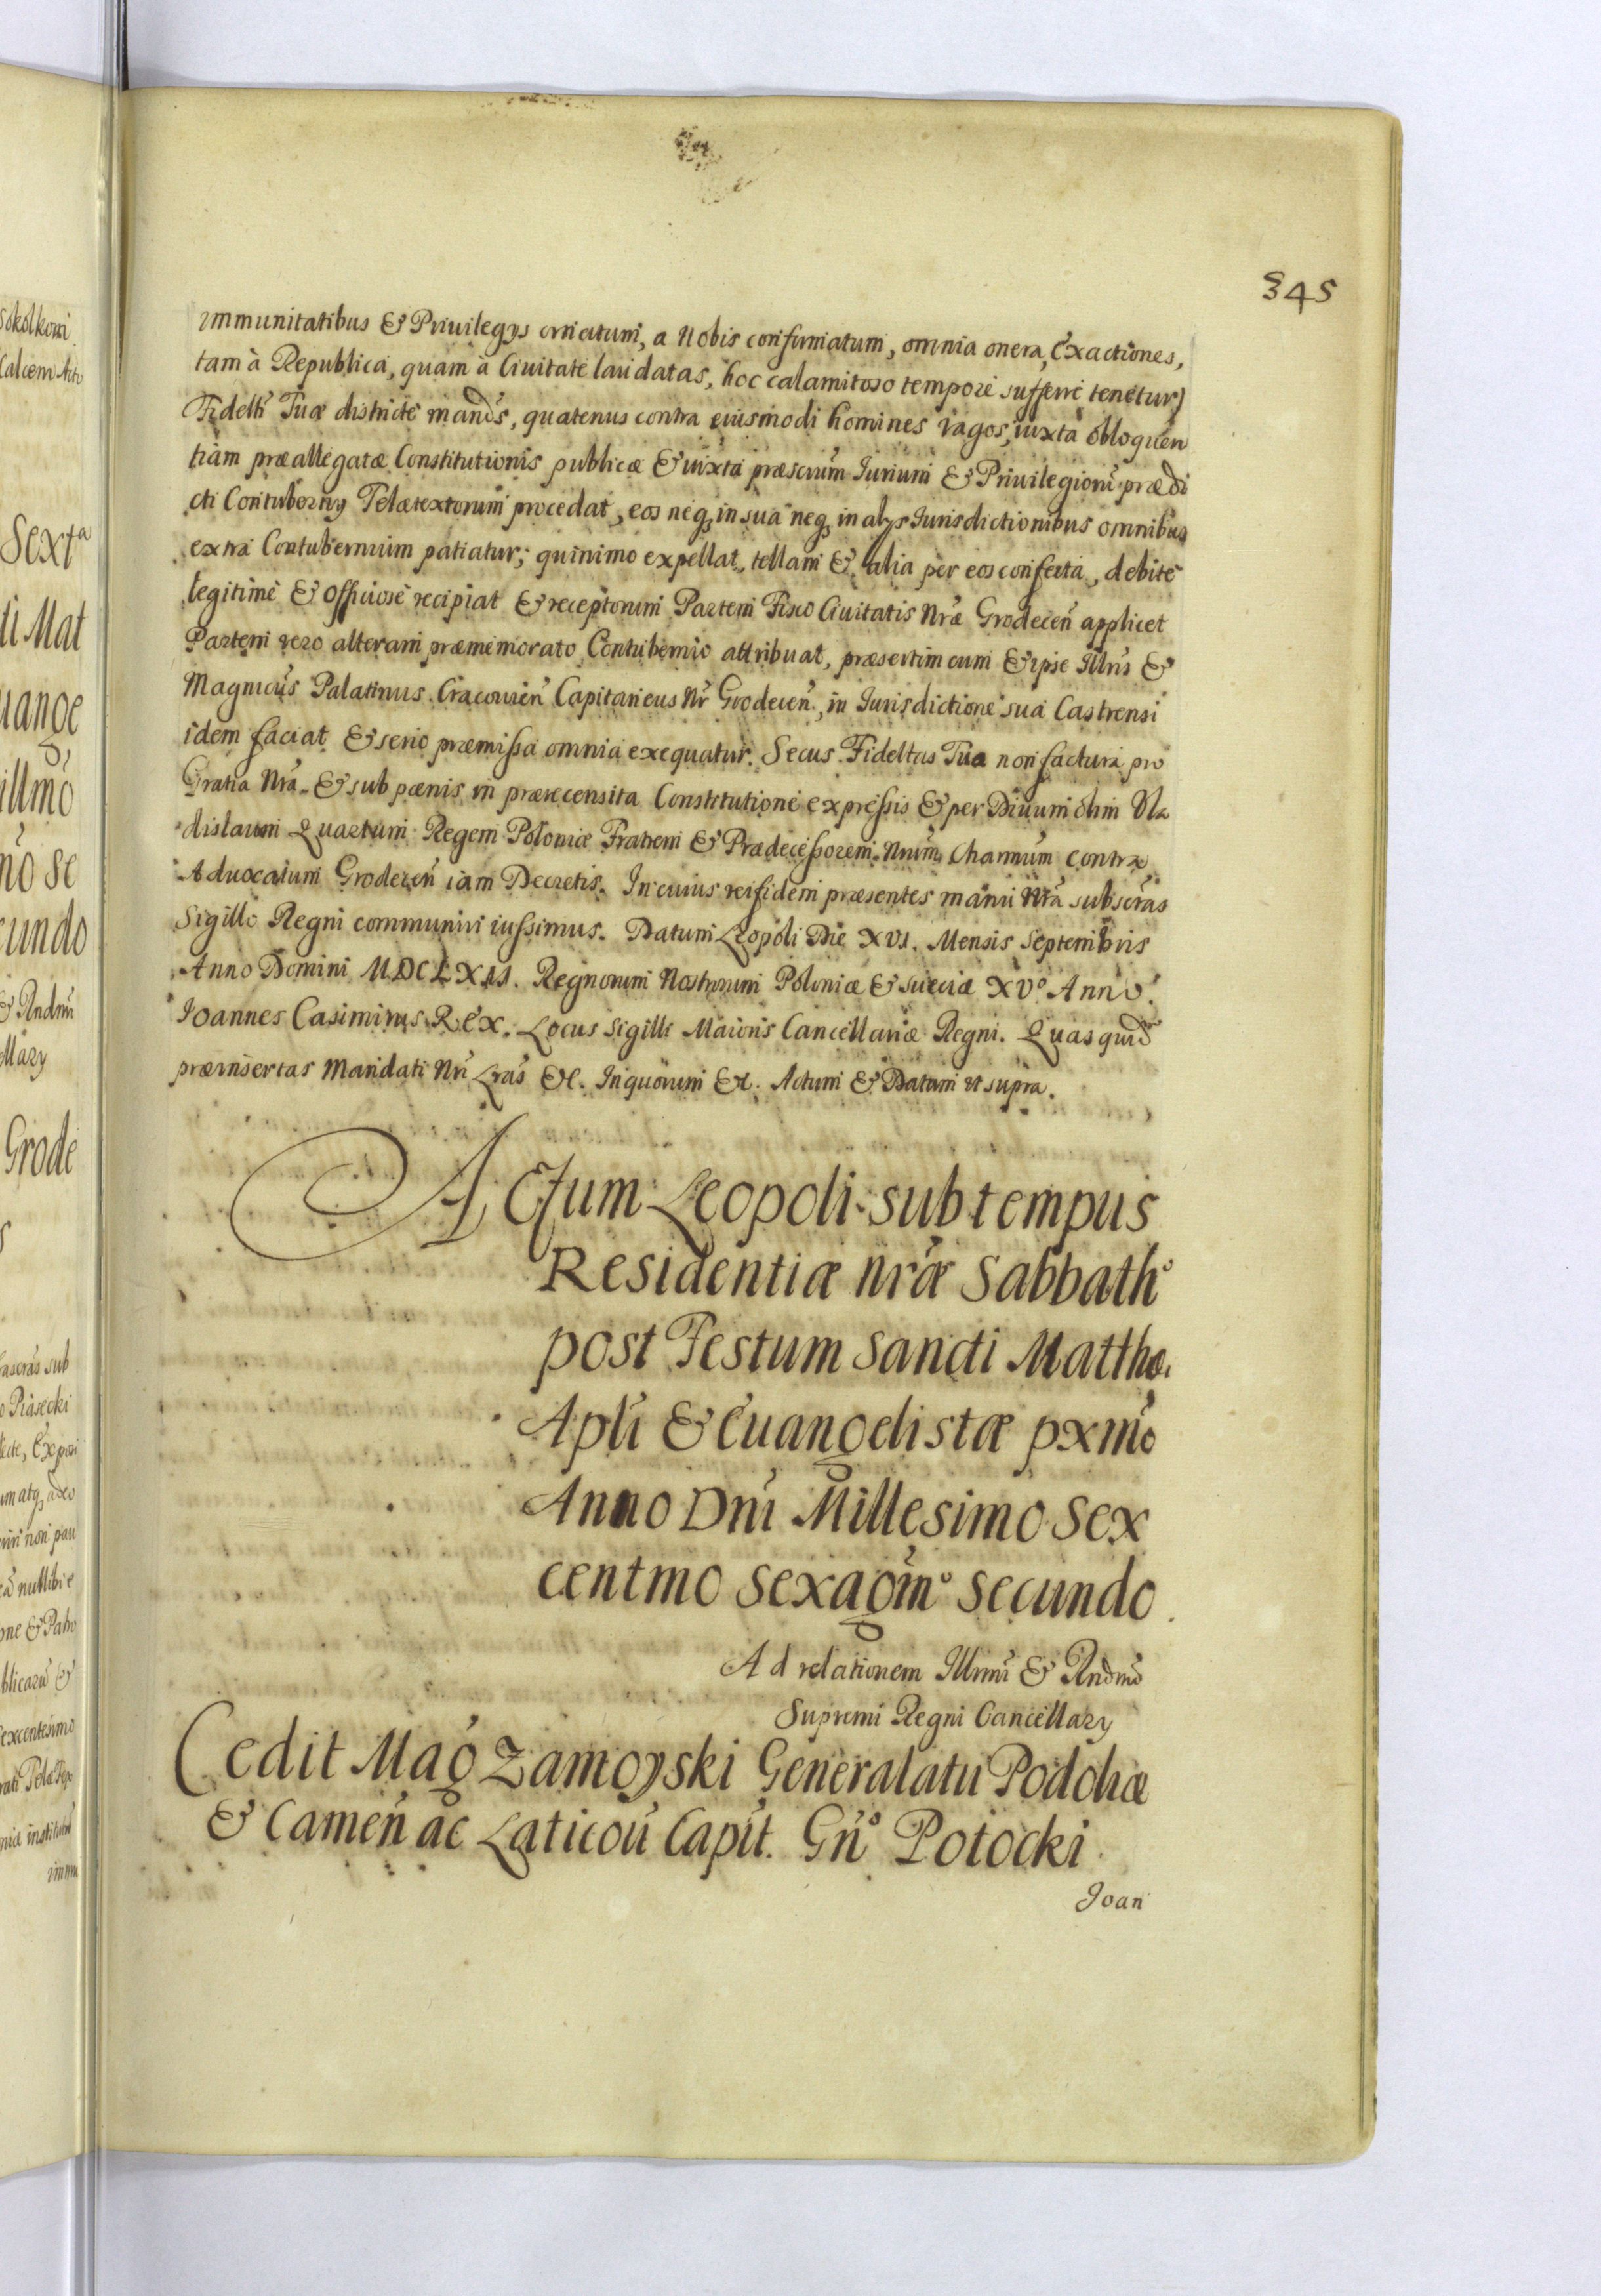 345
immunitatibus & Priuilegys ornatum, a Nobis confirmatum, omnia onera, Exactiones,
tam à Republica, quam à Ciuitate laudatas, hoc calamitoso tempore sufferre tenetur)
Fidelti Tuæ districtè mands, quatenus contra eiusmodi homines vagos, iuxta obloquen
tiam præallegatæ Constitutionis publicæ & iuxta præscrium Iurium & Priuilegioru prædi
cti Contuberny Telætextorum procedat, eos neq in sua neq in alys Iurisdictionibus omnibus
extra Contubernium patiatur; quinimo expellat, tellam & alia per eos conferta, debitè
legitimè & officiosè recipiat & receptorum Partem Fisco Ciuitatis Nræ Grodecen applicet
Partem vero alteram præmemorato Contubernio attribuat, præsertim cum & ipse Illris &
Magnicus Palatinus Cracouien Capitaneus Nr Grodecen, in Iurisdictione sua Castrensi
idem faciat & serio præmissa omnia exequatur. Secus Fideltas Tua non factura pro
Gratia Nra & sub pænis in præcensita Constitutione expressis & per Diuum olim Vla
dislaum Quartum Regem Poloniæ Fratrem & Prædecessorem Nrum Charmum contra
Aduocatum Grodecen iam Decretis. In cuius rei fidem præsentes manu Nra subscras
Sigillo Regni communiri iussimus. Datum Leopoli Die XVI. Mensis Septembris
Anno Domini MDCLXII. Regnorum Nostrorum Poloniæ & Sueciæ XVo Anno.
Ioannes Casimirus Rex. Locus Sigilli Maioris Cancellariæ Regni. Quas quid
præinsertas Mandati Nri Lras &c. In quorum &c. Actum & Datum ut supra.
Actum Leopoli sub tempus
Residentiæ Nræ Sabbatho
post Festum Sancti Matthæi
Apli & Euangelistæ pxmo
Anno Dni Millesimo Sex
centmo Sexagmo Secundo
Ad relationem Illrmi & Rndmi
Supremi Regni Cancellary
Cedit Mag Zamoyski Generalatu Podoliæ
& Camen ac Laticou Capit. Gno Potocki
Ioan